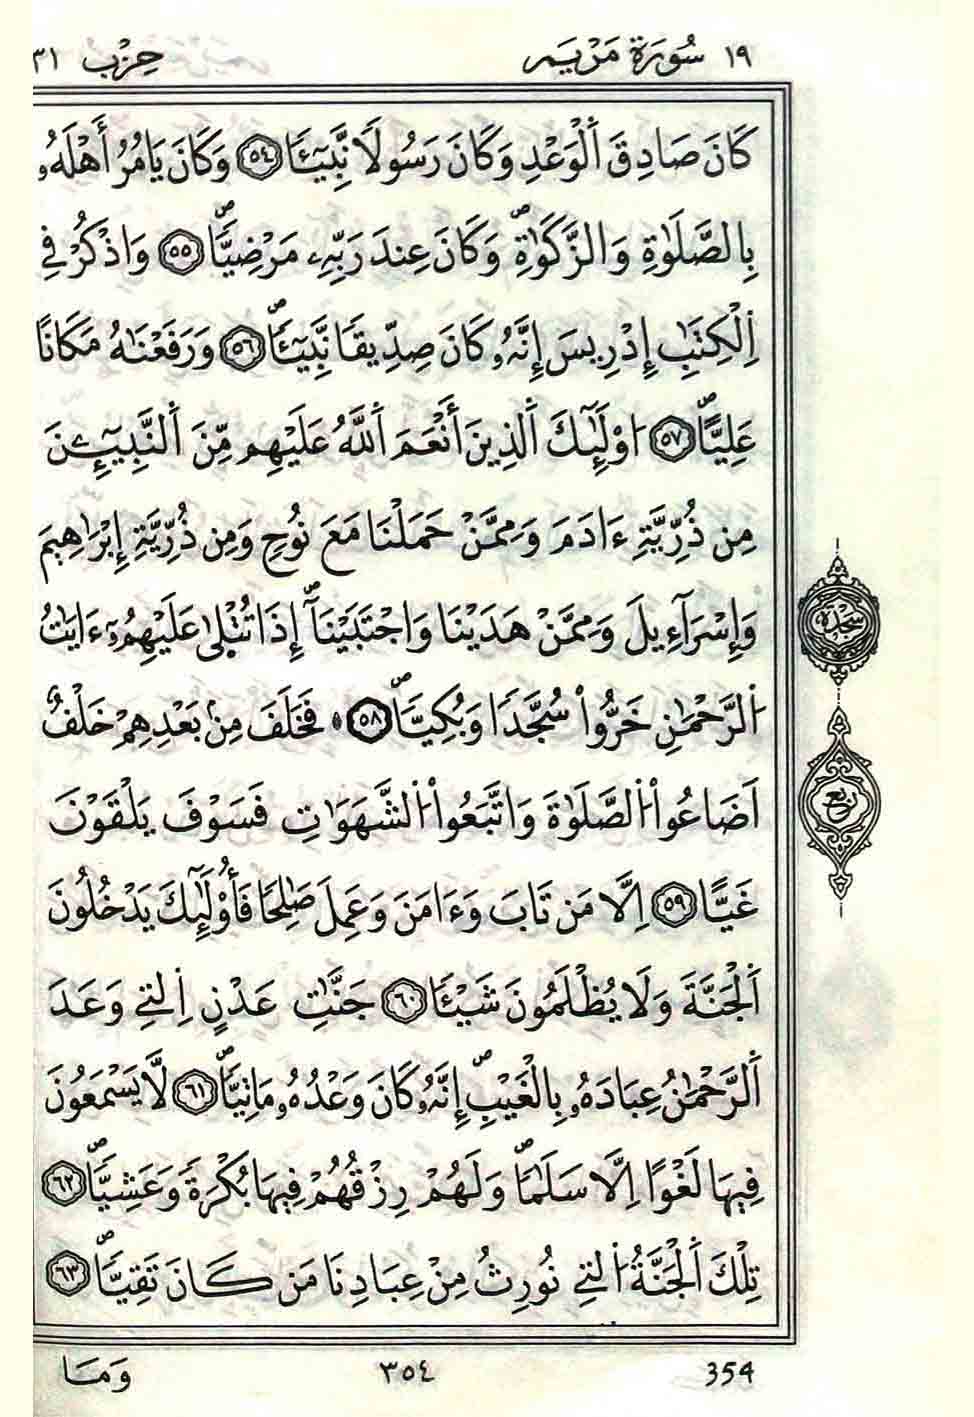 ١٩ سُورَة مَرْيَم حِزْب ٣١
كَانَ صَادِقَ اَ۬لْوَعْدِ وَكَانَ رَسُولاٗ نَّبِيٓـٔاٗ ٥٤ وَكَانَ يَامُرُ أَهْلَهُۥ
بِالصَّلَوٰةِ وَالزَّكَوٰةِۖ وَكَانَ عِندَ رَبِّهِۦ مَرْضِيّاٗۖ ٥٥ وَاذْكُرْ فِے
اِ۬لْكِتَٰبِ إِدْرِيسَ إِنَّهُۥ كَانَ صِدِّيقاٗ نَّبِيٓـٔاٗۖ ٥٦ وَرَفَعْنَٰهُ مَكَاناً
عَلِيّاٗۖ ٥٧ ا۟وْلَٰٓئِكَ اَ۬لذِينَ أَنْعَمَ اَ۬للَّهُ عَلَيْهِم مِّنَ اَ۬لنَّبِيٓـِٕۧنَ
مِن ذُرِّيَّةِ ءَادَمَ وَمِمَّنْ حَمَلْنَا مَعَ نُوحٖ وَمِن ذُرِّيَّةِ إِبْرَٰهِيمَ
وَإِسْرَآءِيلَ وَمِمَّنْ هَدَيْنَا وَاجْتَبَيْنَآۖ إِذَا تُتْلَىٰ عَلَيْهِمُۥٓ ءَايَٰتُ
اُ۬لرَّحْمَٰنِ خَرُّواْ سُجَّداٗ وَبُكِيّاٗۖ ٥٨ فَخَلَفَ مِنۢ بَعْدِهِمْ خَلْفٌ
اَضَاعُواْ اُ۬لصَّلَوٰةَ وَاتَّبَعُواْ اُ۬لشَّهَوَٰتِ فَسَوْفَ يَلْقَوْنَ
غَيّاً ٥٩ اِلَّا مَن تَابَ وَءَامَنَ وَعَمِلَ صَٰلِحاٗ فَأُوْلَٰٓئِكَ يَدْخُلُونَ
اَ۬لْجَنَّةَ وَلَا يُظْلَمُونَ شَيْـٔاٗ ٦٠ جَنَّٰتِ عَدْنٍ اِ۬لتِے وَعَدَ
اَ۬لرَّحْمَٰنُ عِبَادَهُۥ بِالْغَيْبِۖ إِنَّهُۥ كَانَ وَعْدُهُۥ مَاتِيّاٗۖ ٦١ لَّا يَسْمَعُونَ
فِيهَا لَغْواً اِلَّا سَلَٰماٗۖ وَلَهُمْ رِزْقُهُمْ فِيهَا بُكْرَةٗ وَعَشِيّاٗۖ ٦٢
تِلْكَ اَ۬لْجَنَّةُ اُ۬لتِے نُورِثُ مِنْ عِبَادِنَا مَن كَانَ تَقِيّاٗۖ ٦٣
سجدة
ربع
354 ٣٥٤ وَمَا